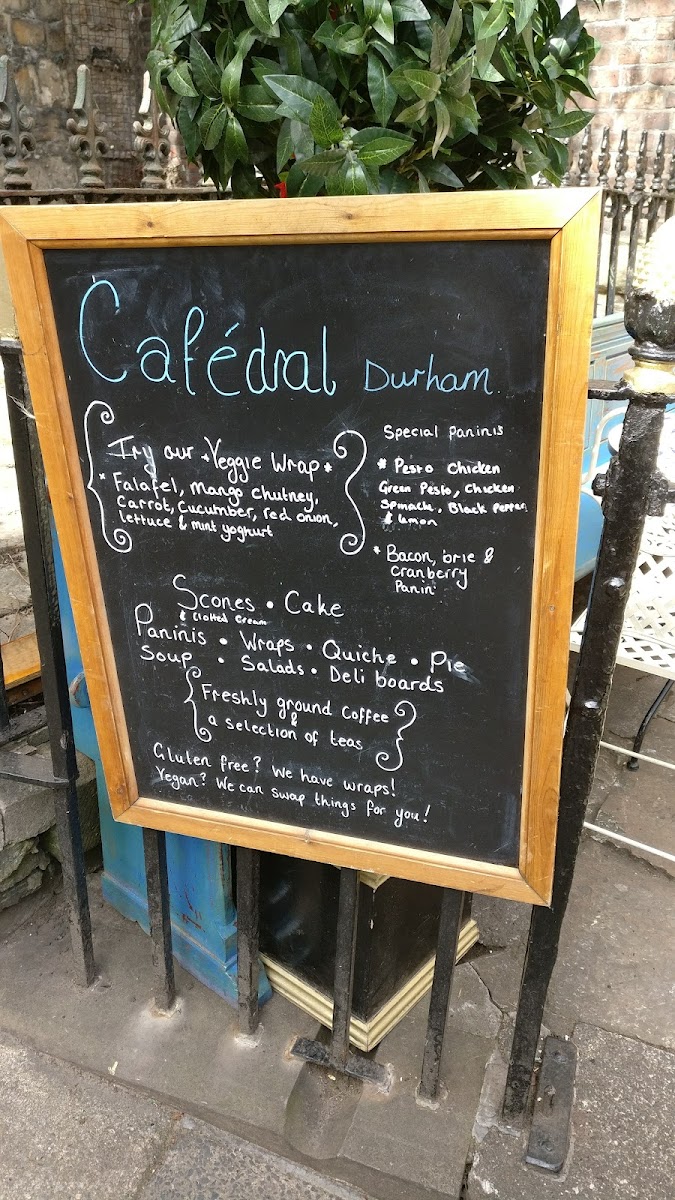 Cafédral Durham
Try our *Veggie Wrap*
* Falafel, Mango chutney,
Carrot, Cucumber, red onion,
lettuce & mint yoghurt
Special Paninis
* Pesto Chicken
Green Pesto, Chicken
Spinach, Black Pepper
& lemon
* Bacon, brie &
Cranberry
Panini
Scones • Cake
& Clotted Cream
Paninis • Wraps • Quiche • Pie
Soup • Salads • Deli boards
Freshly ground coffee
&
a selection of teas
Gluten free? We have wraps!
Vegan? We can swap things for you!